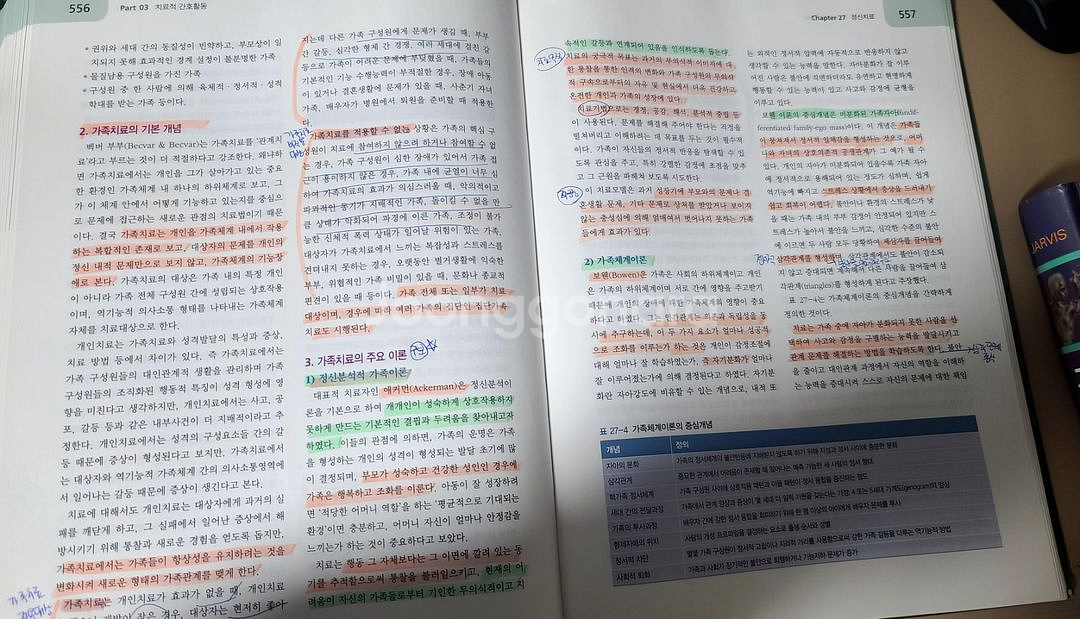 556 Part 03 치료적 간호활동
• 권위와 세대 간의 동질성이 빈약하고, 부모상이 일
치되지 못해 효과적인 경계 설정이 불분명한 가족
• 물질남용 구성원을 가진 가족
• 구성원 중 한 사람에 의해 육체적·정서적·성적
학대를 받는 가족 등이다.
2. 가족치료의 기본 개념
벡버 부부(Becvar & Becvar)는 가족치료를 ‘관계치
료’라고 부르는 것이 더 적절하다고 강조한다. 왜냐하
면 가족치료에서는 개인을 그가 살아가고 있는 중요
한 환경인 가족체계 내 하나의 하위체계로 보고, 그
가 이 체계 안에서 어떻게 기능하고 있는지를 중심으
로 문제에 접근하는 새로운 관점의 치료법이기 때문
이다. 결국 가족치료는 개인을 가족체계 내에서 작용
하는 복합적인 존재로 보고, 대상자의 문제를 개인의
정신 내적 문제만으로 보지 않고, 가족체계의 기능장
애로 본다. 가족치료의 대상은 가족 내의 특정 개인
이 아니라 가족 전체 구성원 간에 성립되는 상호작용
이며, 역기능적 의사소통 형태를 나타내는 가족체계
자체를 치료대상으로 한다.
개인치료와 가족치료는 성격발달의 특성과 증상,
치료 방법 등에서 차이가 있다. 즉 가족치료에서는
가족 구성원들의 대인관계적 생활을 관리하며 가족
구성원들의 조직화된 행동적 특징이 성격 형성에 영
향을 미친다고 생각하지만, 개인치료에서는 사고, 공
포, 갈등 등과 같은 내부사건이 더 지배적이라고 추
정한다. 개인치료에서는 성격의 구성요소들 간의 갈
등 때문에 증상이 형성된다고 보지만, 가족치료에서
는 대상자와 역기능적 가족체계 간의 의사소통영역에
서 일어나는 갈등 때문에 증상이 생긴다고 본다.
치료에 대해서도 개인치료는 대상자에게 과거의 실
패를 깨닫게 하고, 그 실패에서 일어난 증상에서 해
방시키기 위해 통찰과 새로운 경험을 얻도록 돕지만,
가족치료에서는 가족들이 항상성을 유지하려는 것을
변화시켜 새로운 형태의 가족관계를 맺게 한다.
가족치료는 개인치료가 효과가 없을 때, 개인치료
경우, 대상자는 현저히 좋아
지는데 다른 가족 구성원에게 문제가 생길 때, 부부
간 갈등, 심각한 형제 간 경쟁, 여러 세대에 걸친 갈
등으로 가족이 어려운 문제에 부딪혔을 때, 가족들의
기본적인 기능 수행능력이 부적절한 경우, 장애 아동
이 있거나 결혼생활에 문제가 있을 때, 사춘기 자녀
가족, 배우자가 병원에서 퇴원을 준비할 때 적용한
다.
가족치료를 적용할 수 없는 상황은 가족의 핵심 구
성원이 치료에 참여하지 않으려 하거나 참여할 수 없
는 경우, 가족 구성원이 심한 장애가 있어서 가족 접
근이 용이하지 않은 경우, 가족 내에 균열이 너무 심
하여 가족치료의 효과가 의심스러울 때, 악의적이고
파괴적인 동기가 지배적인 가족, 돌이킬 수 없을 만
큼 상태가 악화되어 파경에 이른 가족, 조정이 불가
능한 신체적 폭력 상태가 일어날 위험이 있는 가족,
대상자가 가족치료에서 느끼는 복잡성과 스트레스를
견뎌내지 못하는 경우, 오랫동안 별거생활에 익숙한
부부, 위협적인 가족 비밀이 있을 때, 문화나 종교적
편견이 있을 때 등이다. 가족 전체 또는 일부가 치료
대상이며, 경우에 따라 여러 가족의 집단인 집단가족
치료도 시행된다.
3. 가족치료의 주요 이론
1) 정신분석적 가족이론
대표적 치료자인 애커먼(Ackerman)은 정신분석이
론을 기본으로 하여 개개인이 성숙하게 상호작용하지
못하게 만드는 기본적인 결핍과 두려움을 찾아내고자
하였다. 이들의 관점에 의하면, 가족의 운명은 가족
을 형성하는 개인의 성격이 형성되는 발달 초기에 많
이 결정되며, 부모가 성숙하고 건강한 성인인 경우에
가족은 행복하고 조화를 이룬다. 아동이 잘 성장하려
면 ‘적당한 어머니 역할’을 하는 ‘평균적으로 기대되는
환경’이면 충분하고, 어머니 자신이 얼마나 안정감을
느끼는가 하는 것이 중요하다고 보았다.
치료는 행동 그 자체보다는 그 이면에 깔려 있는 동
기를 추적함으로써 통찰을 불러일으키고, 현재의 어
려움이 자신의 가족들로부터 기인한 무의식적이고 지
Chapter 27 정신치료 557
속적인 갈등과 연계되어 있음을 인식하도록 돕는다.
치료의 궁극적 목표는 과거의 무의식적 이미지에 대
한 통찰을 통한 인격의 변화와 가족 구성원의 무의식
적 구속으로부터의 자유 및 현실에서 더욱 건강하고
온전한 개인과 가족의 성장에 있다.
치료기법으로는 경청, 공감, 해석, 분석적 중립 등
이 사용된다. 문제를 해결해 주어야 한다는 걱정을
떨쳐버리고 이해하려는 데 목표를 두는 것이 필수적
이다. 가족이 자신들의 정서적 반응을 탐색할 수 있
도록 관심을 주고, 특히 강렬한 감정에 초점을 맞추
고 그 근원을 파헤쳐 보도록 시도한다.
이 치료모델은 과거 성장기에 부모와의 문제나 결
혼생활 문제, 기타 문제로 상처를 받았거나 보이지
않는 충성심에 의해 얽매여서 벗어나지 못하는 가족
들에게 효과가 있다.
2) 가족체계이론
보웬(Bowen)은 가족은 사회의 하위체계이고 개인
은 가족의 하위체계이며 서로 간에 영향을 주고받기
때문에 개인의 장애에 대한 가족체계의 영향이 중요
하다고 하였다. 그는 인간관계는 의존과 독립성을 동
시에 추구하는데, 이 두 가지 요소가 얼마나 성공적
으로 조화를 이루는가 하는 것은 개인이 감정조절에
대해 얼마나 잘 학습하였는가, 즉 자기분화가 얼마나
잘 이루어졌는가에 의해 결정된다고 하였다. 자기분
화란 자아강도에 비유할 수 있는 개념으로, 내적 또
는 외적인 정서적 압력에 자동적으로 반응하지 않고
생각할 수 있는 능력을 말한다. 자아분화가 잘 이루
어진 사람은 불안에 직면하더라도 유연하고 현명하게
행동할 수 있는 능력이 있고 사고와 감정에 균형을
이루고 있다.
보웬 이론의 중심개념은 미분화된 가족자아(undif-
ferentiated family-ego mass)이다. 이 개념은 가족들
이 뭉쳐져서 정서적 일체감을 형성하는 것으로, 어머
니와 자녀의 상호의존적 공생관계가 그 예가 될 수
있다. 개인의 자아가 미분화되어 있을수록 가족 자아
에 정서적으로 융해되어 있는 정도가 심하며, 쉽게
역기능에 빠지고 스트레스 상황에서 증상을 드러내기
쉽고 회복이 어렵다. 불안이나 환경의 스트레스가 낮
을 때는 가족 내의 부부 감정이 안정되어 있지만 스
트레스가 높아서 불안을 느끼고, 심각한 수준의 불안
에 이르면 두 사람 모두 당황하여 제삼자를 끌어들여
삼각관계를 형성하며, 삼각관계에서도 불안이 감소되
지 않고 증대되면 계속해서 다른 사람을 끌어들여 삼
각관계(triangles)를 형성하게 된다고 주장했다.
표 27-4는 가족체계이론의 중심개념을 간략하게
정의한 것이다.
치료는 가족 중에 자아가 분화되지 못한 사람을 선
택하여 사고와 감정을 구별하는 능력을 발달시키고
관계 문제를 해결하는 방법을 학습하도록 한다. 불안
을 줄이고 대인관계 과정에서 자신의 역할을 이해하
는 능력을 증대시켜 스스로 자신의 문제에 대한 책임
표 27-4 가족체계이론의 중심개념
개념 정의
자아의 분화 가족의 정서체계의 불안반응에 지배받지 않도록 하기 위해 지성과 정서 사이에 충분한 분화
삼각관계 중요한 관계에서 어려움이 존재할 때 일어나는 예측 가능한 세 사람의 정서 형태
핵가족 정서체계 가족 구성원 사이에 상호작용 패턴과 이들 패턴이 정서 융합을 증진하는 정도
세대 간의 전달과정 가족에서 관계 양상과 증상이 몇 세대 더 일찍 기원을 갖는다는 가정; 4 또는 5세대 가계도(genogram)의 양상
가족의 투사과정 배우자 간에 강한 정서 융합을 회피하기 위해 한 명 이상의 아이에게 배우자 문제를 투사
형제자매의 위치 사람의 개성 프로파일을 결정하는 요소로 출생 순서와 성별
정서적 차단 몇몇 가족 구성원이 정서적 고립이나 지리적 거리를 사용함으로써 강한 가족 갈등을 다루는 역기능적 방법
사회적 퇴화 가족과 사회가 장기적인 불안으로 퇴행하거나 기능저하 문제가 증가
JARVIS